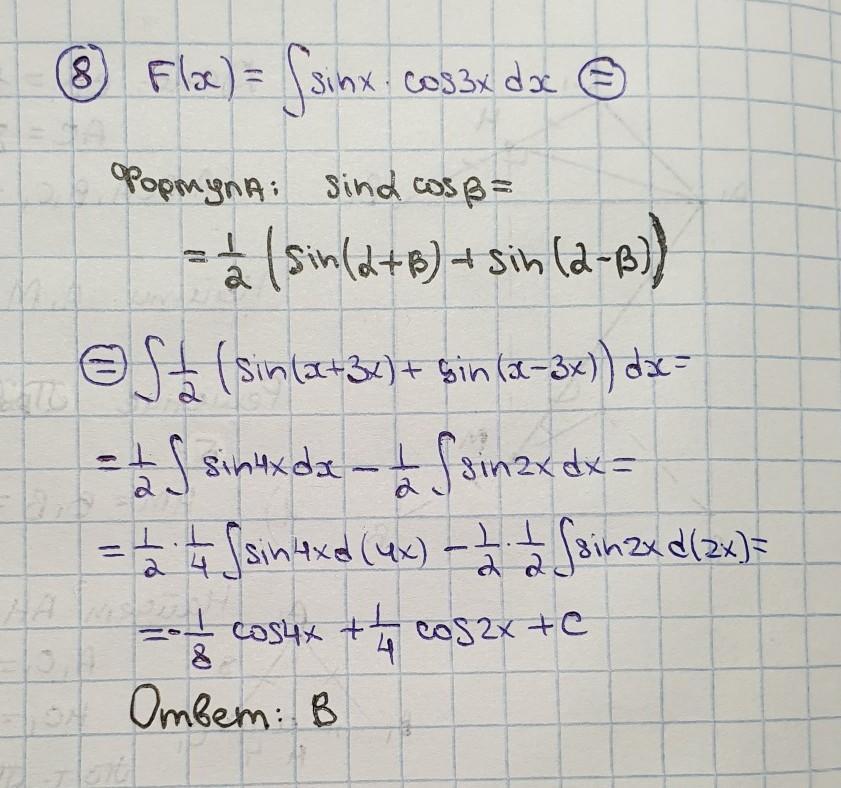 ⑧ F(x) = ∫sinx · cos3x dx ⊜
Формула: sinα cosβ =
= 1/2 (sin(α+β) + sin(α-β))
⊜ ∫ 1/2 (sin(x+3x) + sin(x-3x)) dx =
= 1/2 ∫ sin4x dx - 1/2 ∫ sin2x dx =
= 1/2 · 1/4 ∫sin4x d(4x) - 1/2 · 1/2 ∫sin2x d(2x) =
= - 1/8 cos4x + 1/4 cos2x + C
Ответ: В